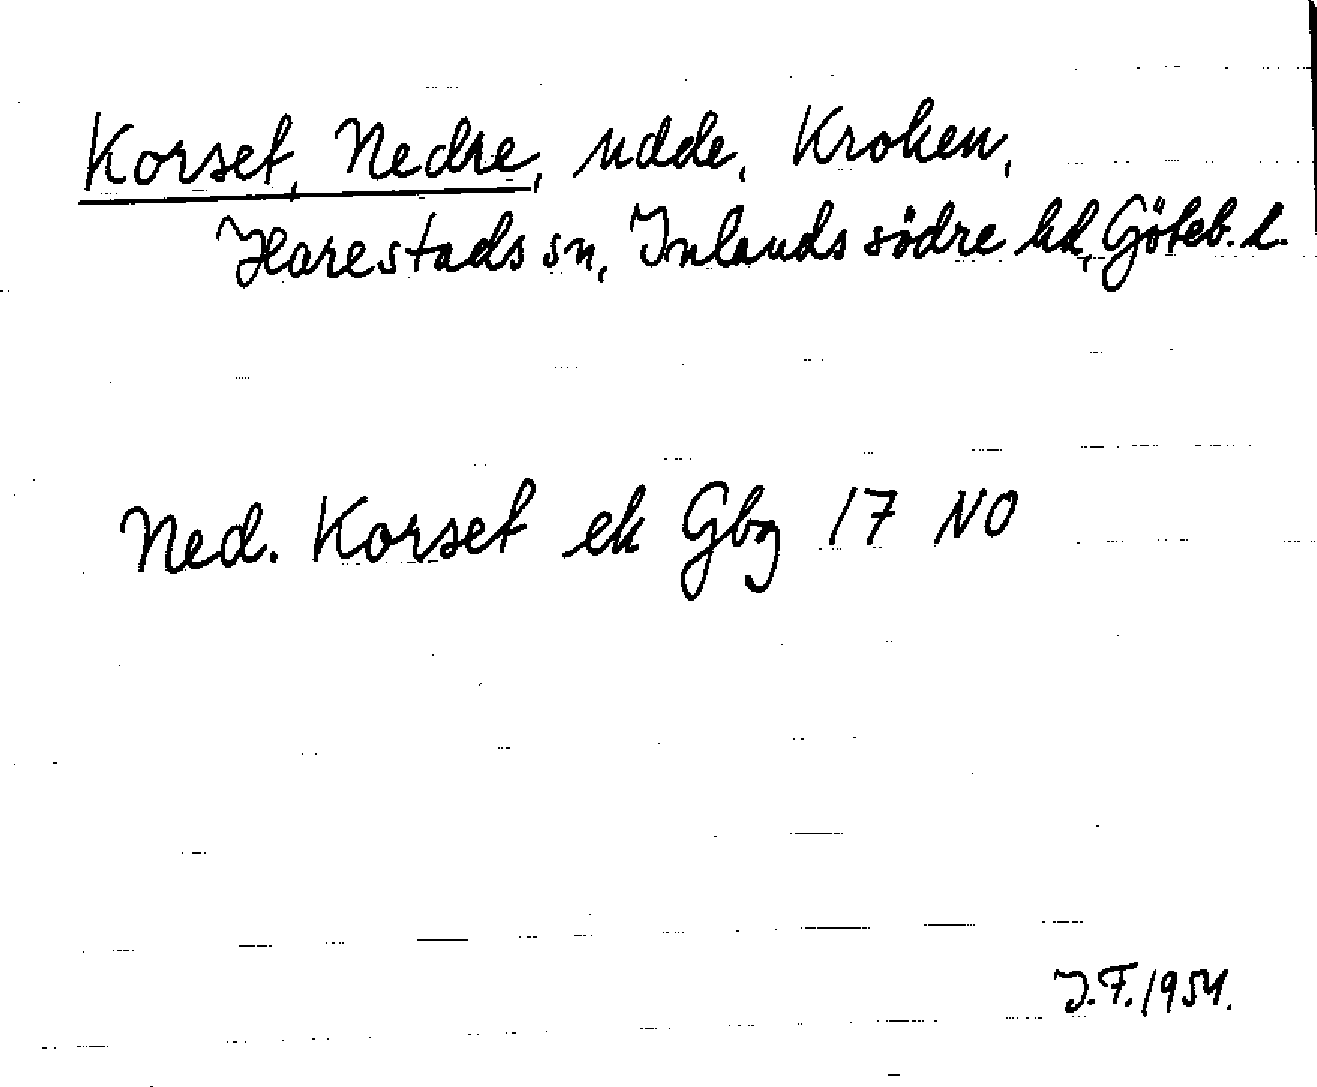 Korset, Nedre, udde, Kroken,
Harestads sn, Inlands södre hd, Göteb. l.
Ned. Korset ek Gbg 17 NO
J.F. 1954.